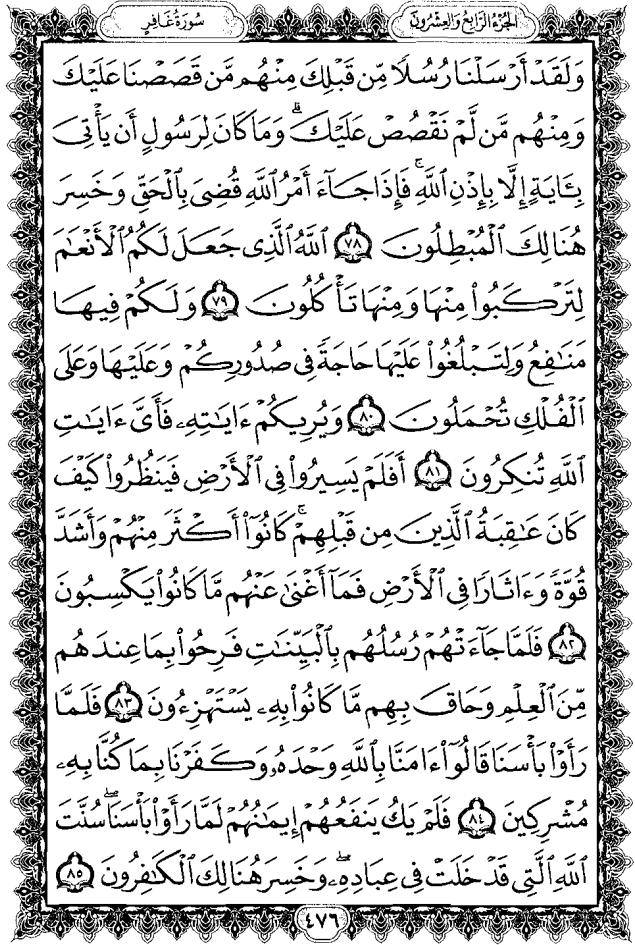 سُورَةُ غَافِرٍ الجُزْءُ الرَّابِعُ وَالعِشْرُونَ
وَلَقَدْ أَرْسَلْنَا رُسُلًا مِّن قَبْلِكَ مِنْهُم مَّن قَصَصْنَا عَلَيْكَ
وَمِنْهُم مَّن لَّمْ نَقْصُصْ عَلَيْكَ ۗ وَمَا كَانَ لِرَسُولٍ أَن يَأْتِىَ
بِـَٔايَةٍ إِلَّا بِإِذْنِ ٱللَّهِ ۚ فَإِذَا جَآءَ أَمْرُ ٱللَّهِ قُضِىَ بِٱلْحَقِّ وَخَسِرَ
هُنَالِكَ ٱلْمُبْطِلُونَ ٧٨ ٱللَّهُ ٱلَّذِى جَعَلَ لَكُمُ ٱلْأَنْعَٰمَ
لِتَرْكَبُوا۟ مِنْهَا وَمِنْهَا تَأْكُلُونَ ٧٩ وَلَكُمْ فِيهَا
مَنَٰفِعُ وَلِتَبْلُغُوا۟ عَلَيْهَا حَاجَةً فِى صُدُورِكُمْ وَعَلَيْهَا وَعَلَى
ٱلْفُلْكِ تُحْمَلُونَ ٨٠ وَيُرِيكُمْ ءَايَٰتِهِۦ فَأَىَّ ءَايَٰتِ
ٱللَّهِ تُنكِرُونَ ٨١ أَفَلَمْ يَسِيرُوا۟ فِى ٱلْأَرْضِ فَيَنظُرُوا۟ كَيْفَ
كَانَ عَٰقِبَةُ ٱلَّذِينَ مِن قَبْلِهِمْ ۚ كَانُوٓا۟ أَكْثَرَ مِنْهُمْ وَأَشَدَّ
قُوَّةً وَءَاثَارًا فِى ٱلْأَرْضِ فَمَآ أَغْنَىٰ عَنْهُم مَّا كَانُوا۟ يَكْسِبُونَ
٨٢ فَلَمَّا جَآءَتْهُمْ رُسُلُهُم بِٱلْبَيِّنَٰتِ فَرِحُوا۟ بِمَا عِندَهُم
مِّنَ ٱلْعِلْمِ وَحَاقَ بِهِم مَّا كَانُوا۟ بِهِۦ يَسْتَهْزِءُونَ ٨٣ فَلَمَّا
رَأَوْا۟ بَأْسَنَا قَالُوٓا۟ ءَامَنَّا بِٱللَّهِ وَحْدَهُۥ وَكَفَرْنَا بِمَا كُنَّا بِهِۦ
مُشْرِكِينَ ٨٤ فَلَمْ يَكُ يَنفَعُهُمْ إِيمَٰنُهُمْ لَمَّا رَأَوْا۟ بَأْسَنَا ۖ سُنَّتَ
ٱللَّهِ ٱلَّتِى قَدْ خَلَتْ فِى عِبَادِهِۦ ۖ وَخَسِرَ هُنَالِكَ ٱلْكَٰفِرُونَ ٨٥
٤٧٦